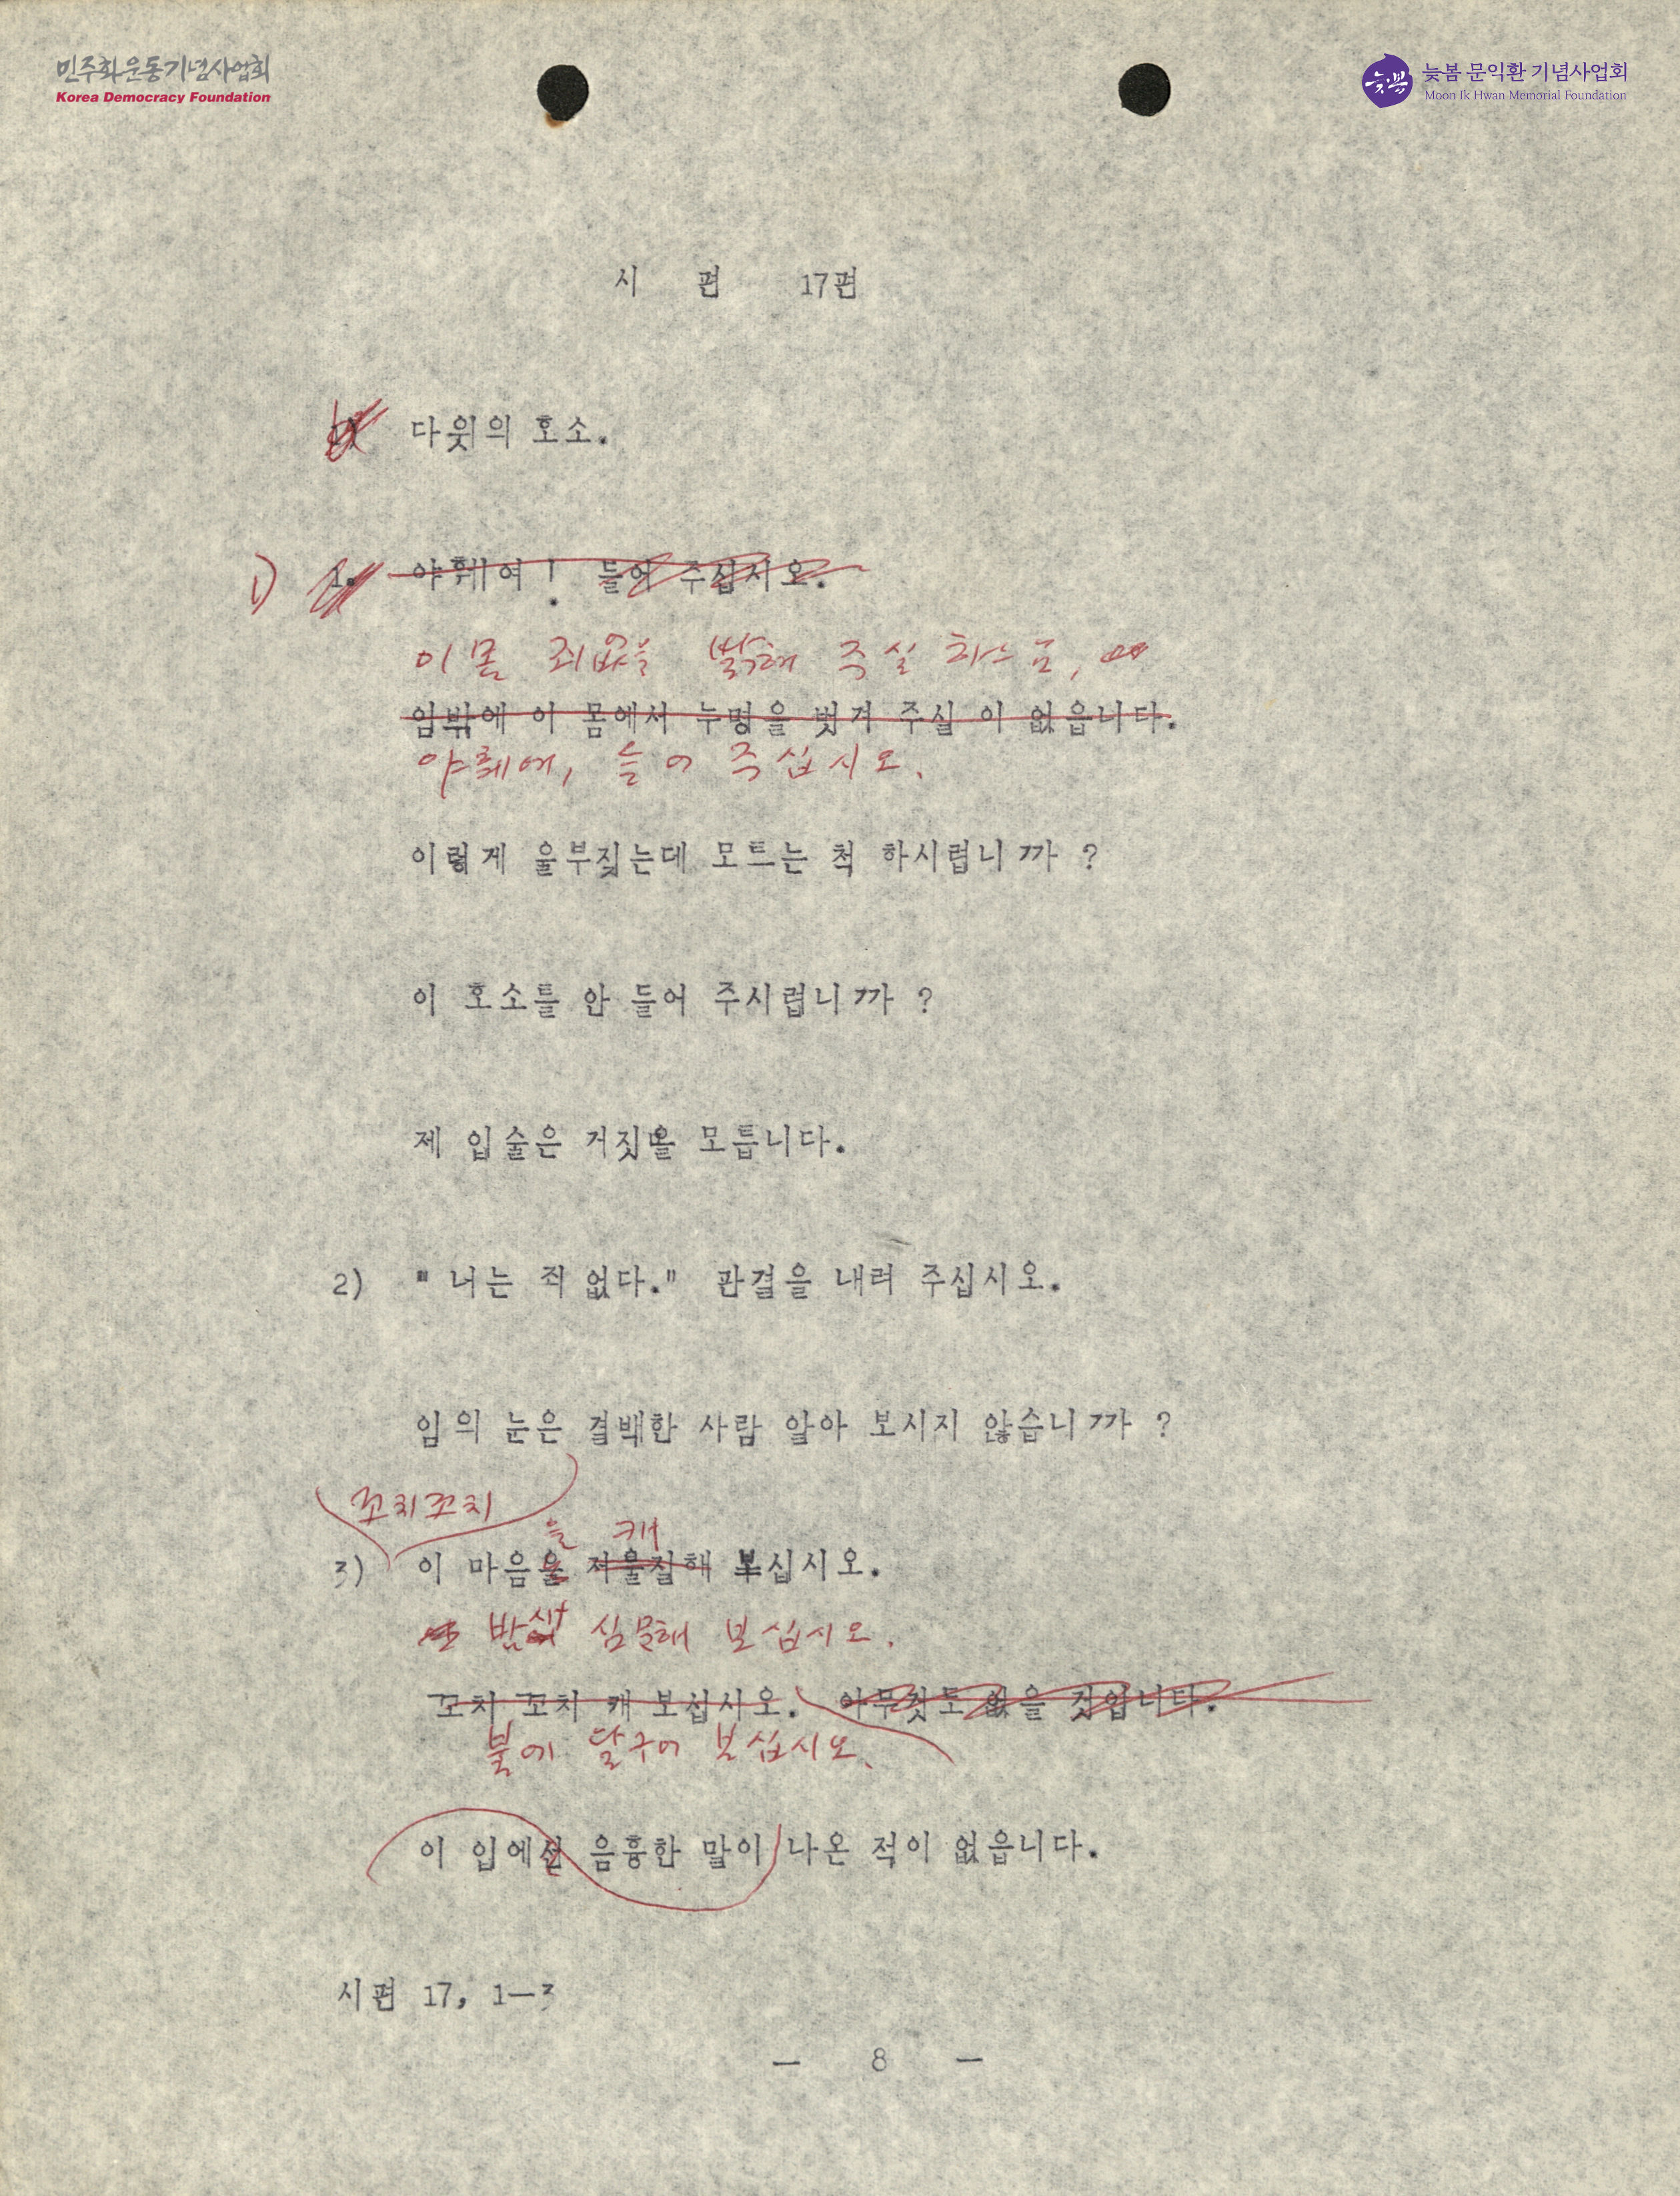 민주화운동기념사업회
Korea Democracy Foundation
늦봄
늦봄 문익환 기념사업회
Moon Ik Hwan Memorial Foundation
시 편 17편
다윗의 호소.
1) 1. 야훼여! 들어 주십시오.
이 몸 죄없음 밝혀 주실
임밖에 이 몸에서 누명을 벗겨 주실 이 없읍니다.
야훼여, 들어 주십시오.
이렇게 울부짖는데 모르는 척 하시렵니까 ?
이 호소를 안 들어 주시렵니까 ?
제 입술은 거짓을 모릅니다.
2) "너는 죄 없다." 판결을 내려 주십시오.
임의 눈은 결백한 사람 알아 보시지 않습니까 ?
꼬치꼬치
을 캐
3) 이 마음을 저울질해 보십시오.
밤새 심문해 보십시오.
꼬치 꼬치 캐 보십시오. 아무것도 없을 것입니다.
불에 달구어 보십시오.
이 입에선 음흉한 말이 나온 적이 없읍니다.
시편 17, 1—3
— 8 —